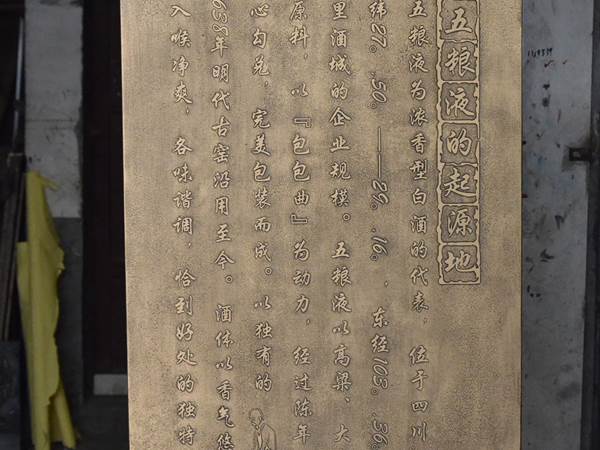 五粮液的起源地
五粮液为浓香型白酒的代表，位于四川
纬27。.50。——29。.16。，东经103。.36。
里酒城的企业规模。五粮液以高梁、大
原料，以『包包曲』为动力，经过陈年
心勾兑，完美包装而成。以独有的
1368年明代古窖沿用至今。酒体以香气悠
入喉净爽，各味谐调，恰到好处的独特